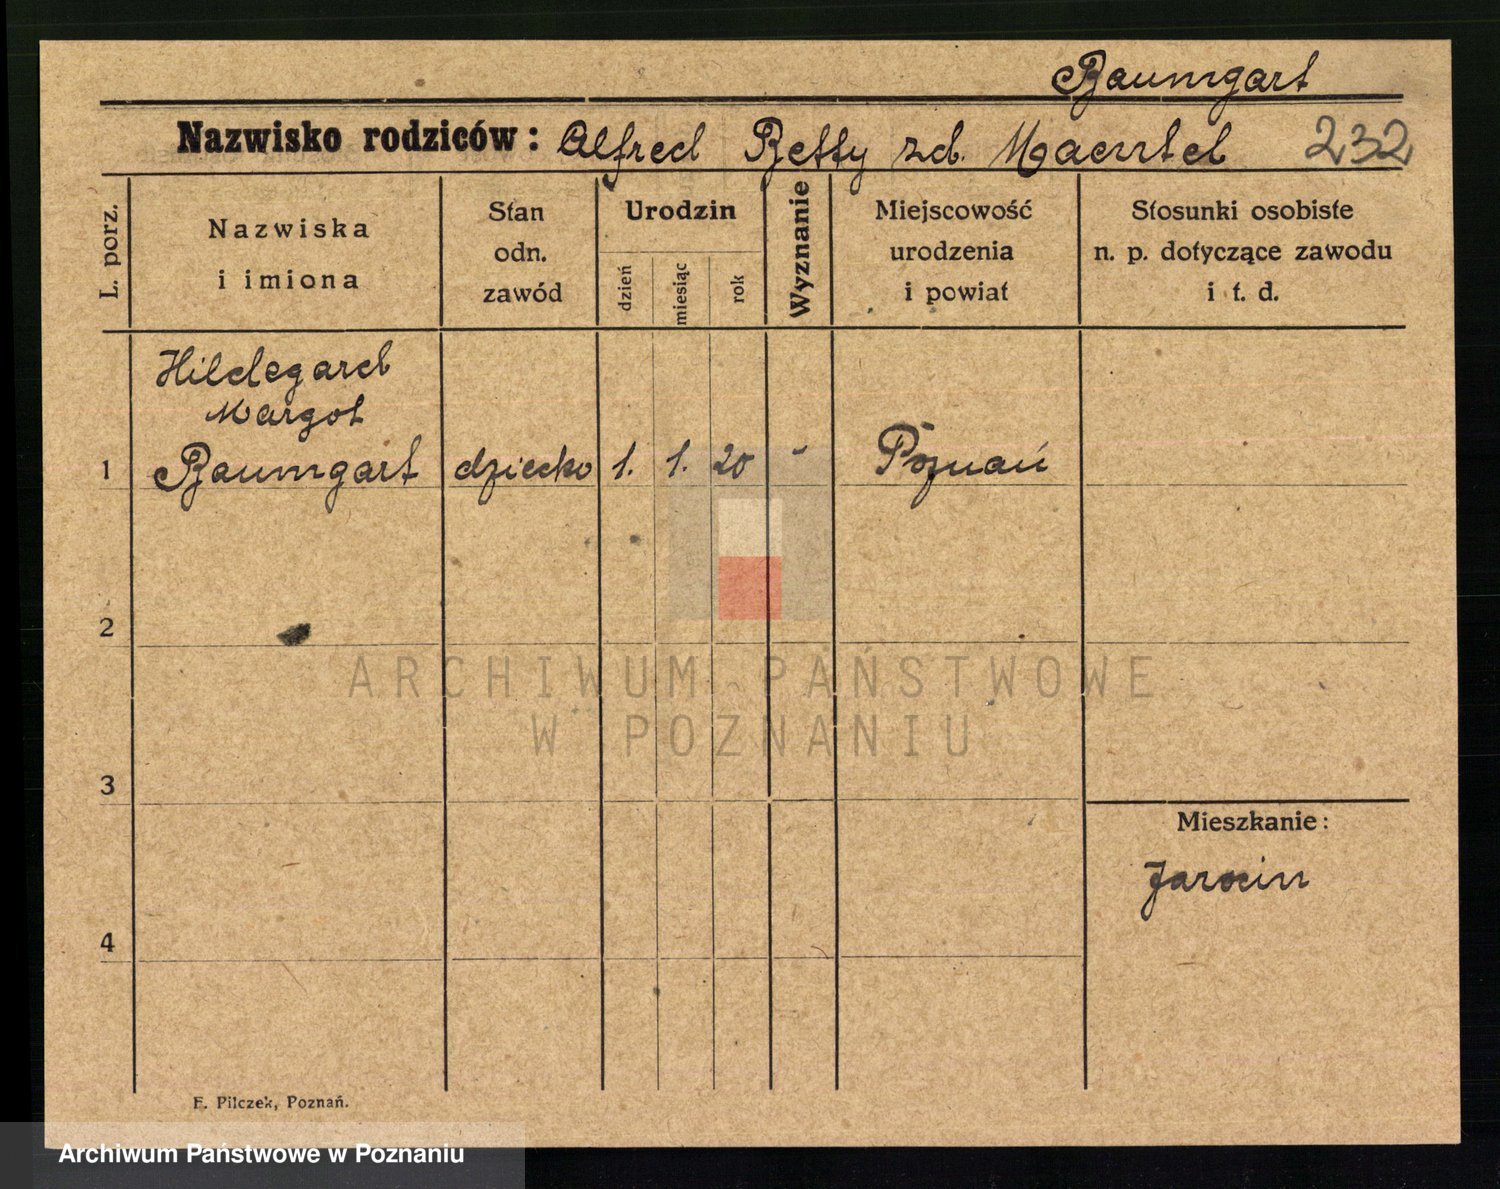 Baumgart
Nazwisko rodziców: Alfred Betty zd. Maentel 232
L. porz.
Nazwiska
i imiona
Stan
odn.
zawód
Urodzin
dzień
miesiąc
rok
Wyznanie
Miejscowość
urodzenia
i powiat
Stosunki osobiste
n. p. dotyczące zawodu
i t. d.
Hildegard
Margot
1 Baumgart dziecko 1. 1. 20 - Poznań
2
ARCHIWUM PAŃSTWOWE
W POZNANIU
3
Mieszkanie:
Jarocin
4
F. Pilczek, Poznań.
Archiwum Państwowe w Poznaniu